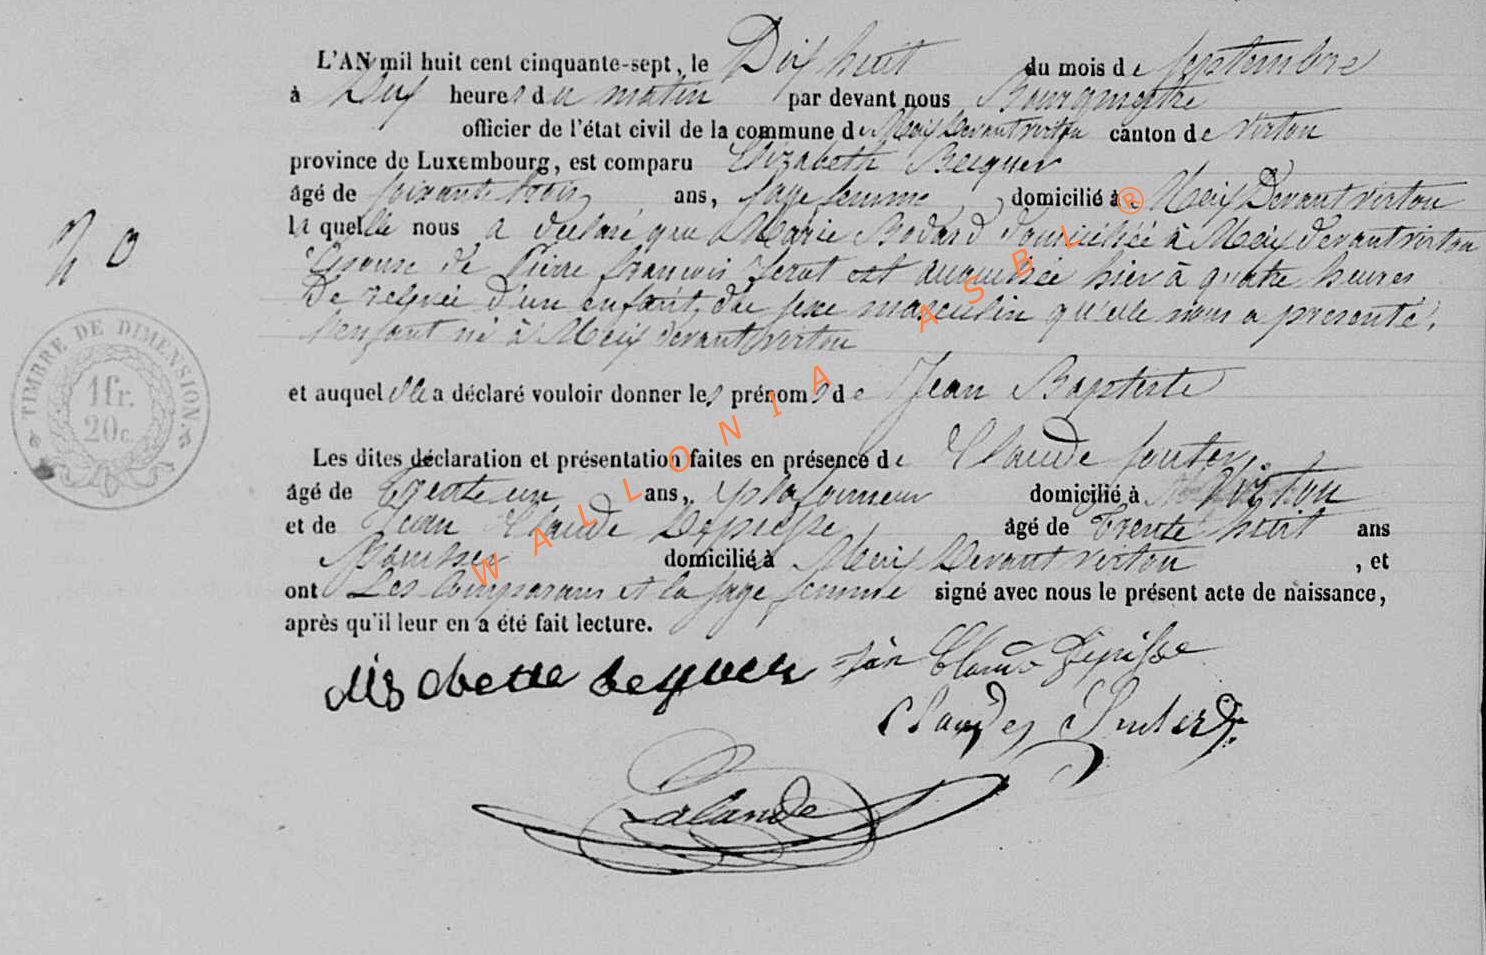 L'AN mil huit cent cinquante-sept, le Dix huit du mois de septembre
à Dix heures du matin par devant nous Bourgmestre
officier de l'état civil de la commune de Meix Devant virton canton de virton
province de Luxembourg, est comparu Elizabeth Becquer
âgé de soixante trois ans, sage femme, domicilié à Meix Devant virton
la quelle nous a declaré que Marie Bodard domiciliée à Meix devant virton
Epouse de Pierre francois est accouchée hier à quatre heures
De relevée d'un enfant du sexe masculin qu'elle nous a presenté,
l'enfant né à Meix devant virton
et auquel elle a déclaré vouloir donner les prénoms de Jean Baptiste
Les dites déclaration et présentation faites en présence de Claude
âgé de Trente un ans, plafonneur domicilié à Virton
et de Jean Claude âgé de Trente huit ans
domicilié à Meix Devant virton, et
ont Les comparans et la sage femme signé avec nous le présent acte de naissance,
après qu'il leur en a été fait lecture.
20
TIMBRE DE DIMENSION.
1fr.
20c.
becquer
Claude
Lalande
WALLONIA ASBL ®